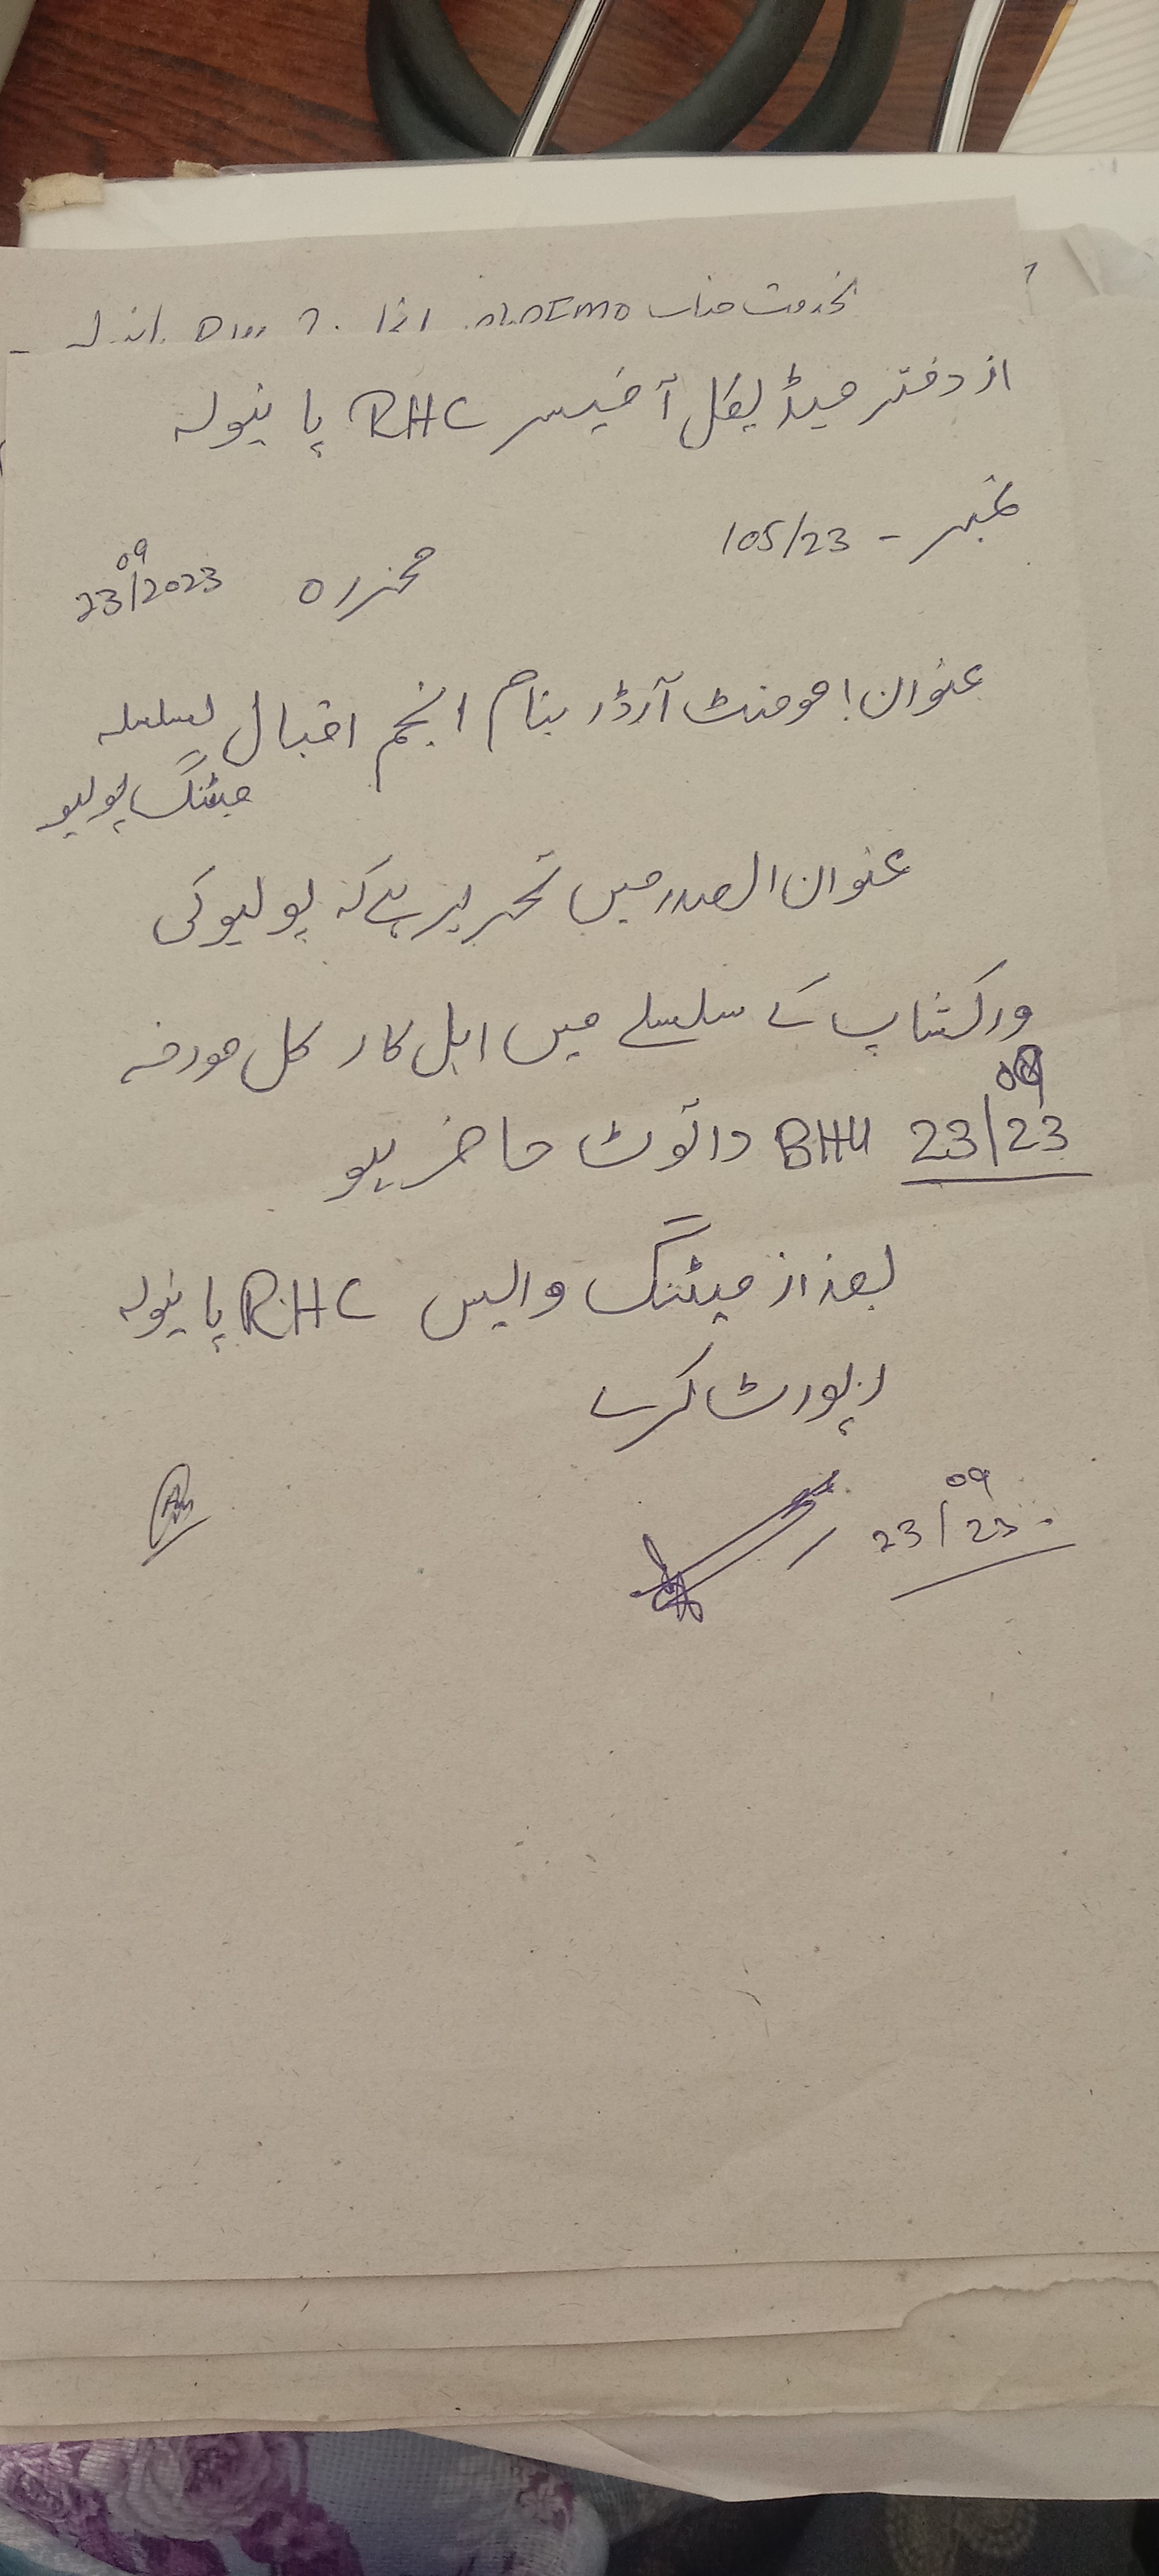 بخدمت جناب DEMO
از دفتر میڈیکل آفیسر RHC پانیولہ
نمبر - 105/23
محررہ 23/09/2023
عنوان! مومنٹ آرڈر بنام انجم اقبال بسلسلہ
میٹنگ پولیو
عنوان الصدر میں تحریر ہے کہ پولیو کی
ورکشاپ کے سلسلے میں اہل کار کل مورخہ
23/09/23 BHU داتوٹ حاضر ہو
بعد از میٹنگ واپس RHC پانیولہ
رپورٹ کرے
23/09/23